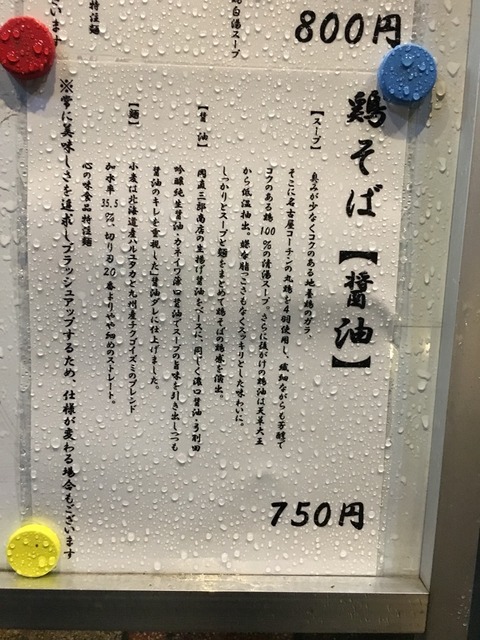 800円
鶏白湯スープ
特注麺
ざいます
鶏そば【醤油】
【スープ】
臭みが少なくコクのある地養鶏のガラ、
そこに名古屋コーチンの丸鶏を4羽使用し、繊細ながらも芳醇で
コクのある鶏100%の清湯スープ。さらに後がけの鶏油は天草大王
から低温抽出。嫌な脂っこさもなくスッキリとした味わいに。
しっかりとスープと麺をまとめて鶏そばの鶏感を演出。
【醤油】
岡直三郎商店の生揚げ醤油をベースに、同じく濃口醤油・弓削田
吟醸純生醤油・カネイワ濃口醤油でスープの旨味を引き出しつつも
醤油のキレを重視した醤油ダレに仕上げました。
【麺】
小麦は北海道産ハルユタカと九州産チクゴイズミのブレンド
加水率35.5%、切り刃20番よりやや細めのストレート。
心の味食品特注麺
750円
※常に美味しさを追求しブラッシュアップするため、仕様が変わる場合もございます